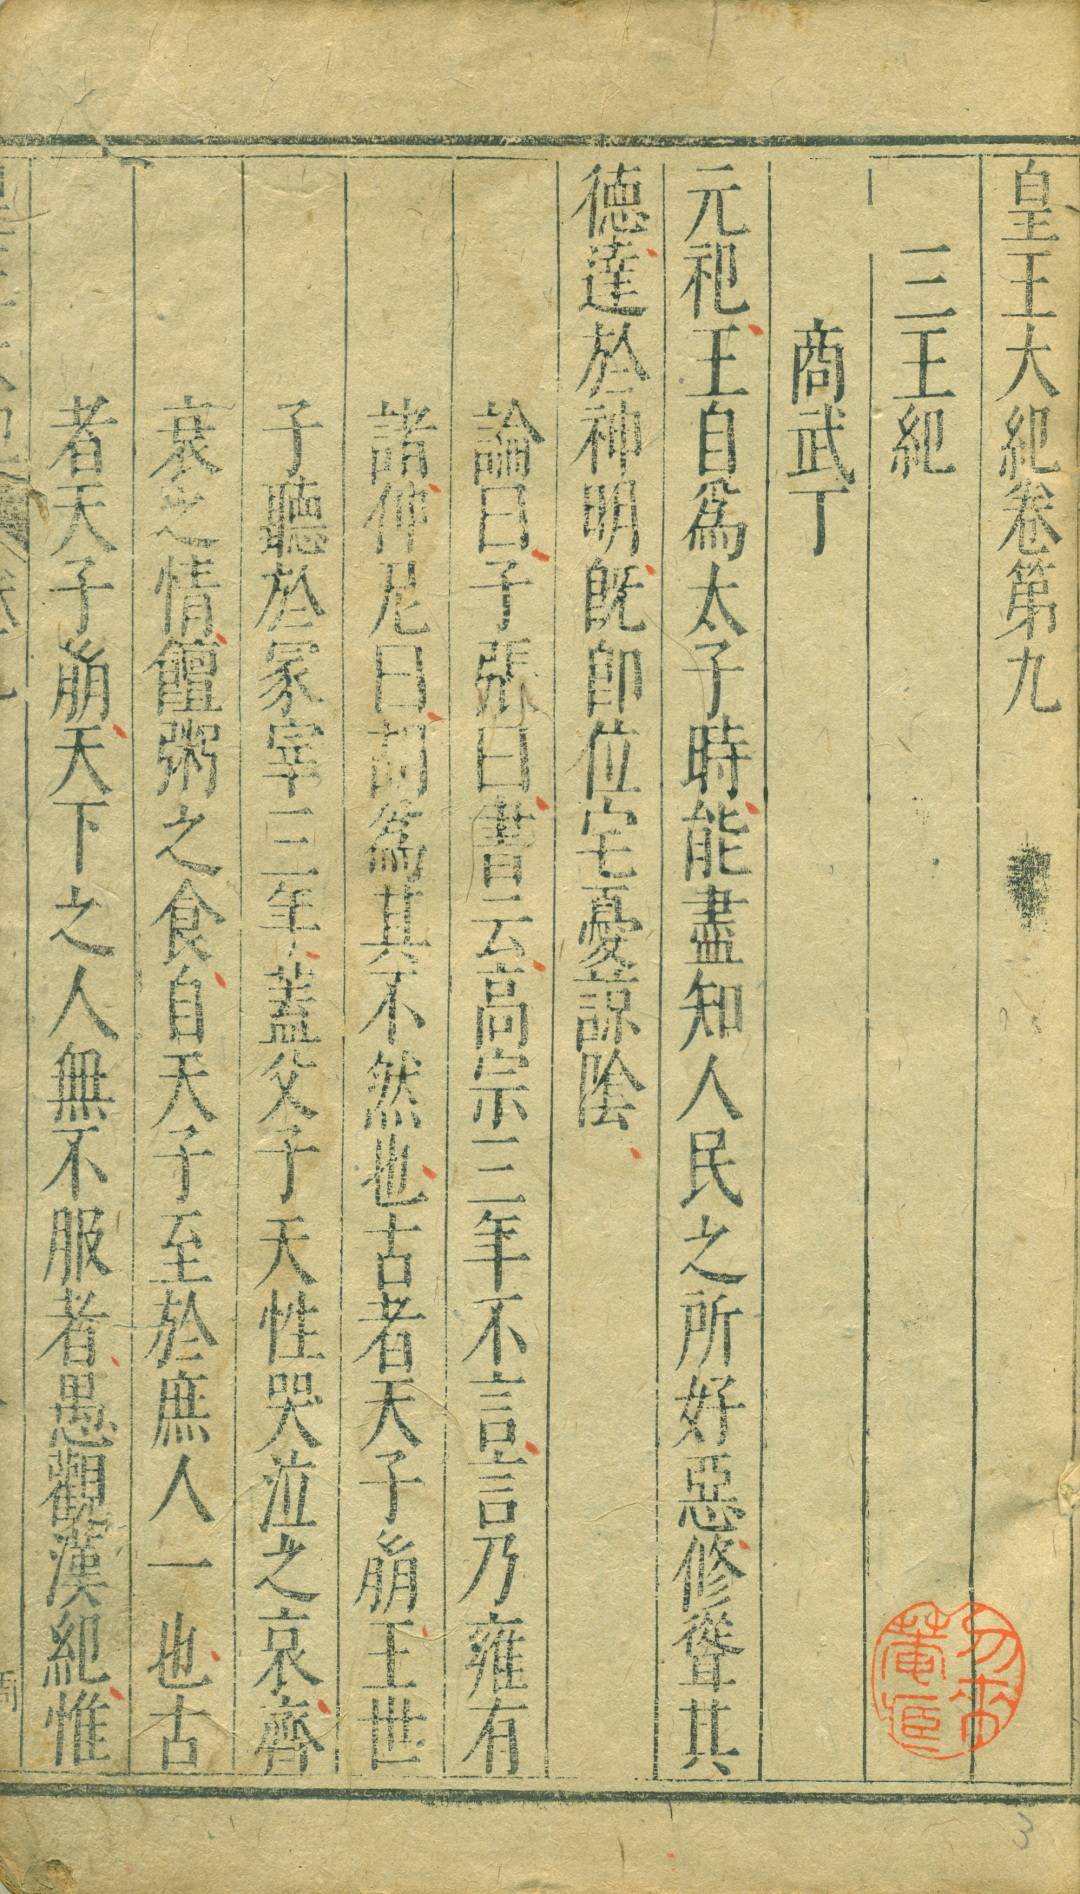 皇王大紀卷第九
三王紀
商武丁
元祀王自爲太子時能盡知人民之所好惡修聳其
德達於神明旣卽位宅憂諒陰
論曰子張曰書云高宗三年不言言乃雍有
諸仲尼曰胡爲其不然也古者天子崩王世
子聽於冢宰三年蓋父子天性哭泣之哀齊
衰之情饘粥之食自天子至於庶人一也古
者天子崩天下之人無不服者愚觀漢紀惟
3